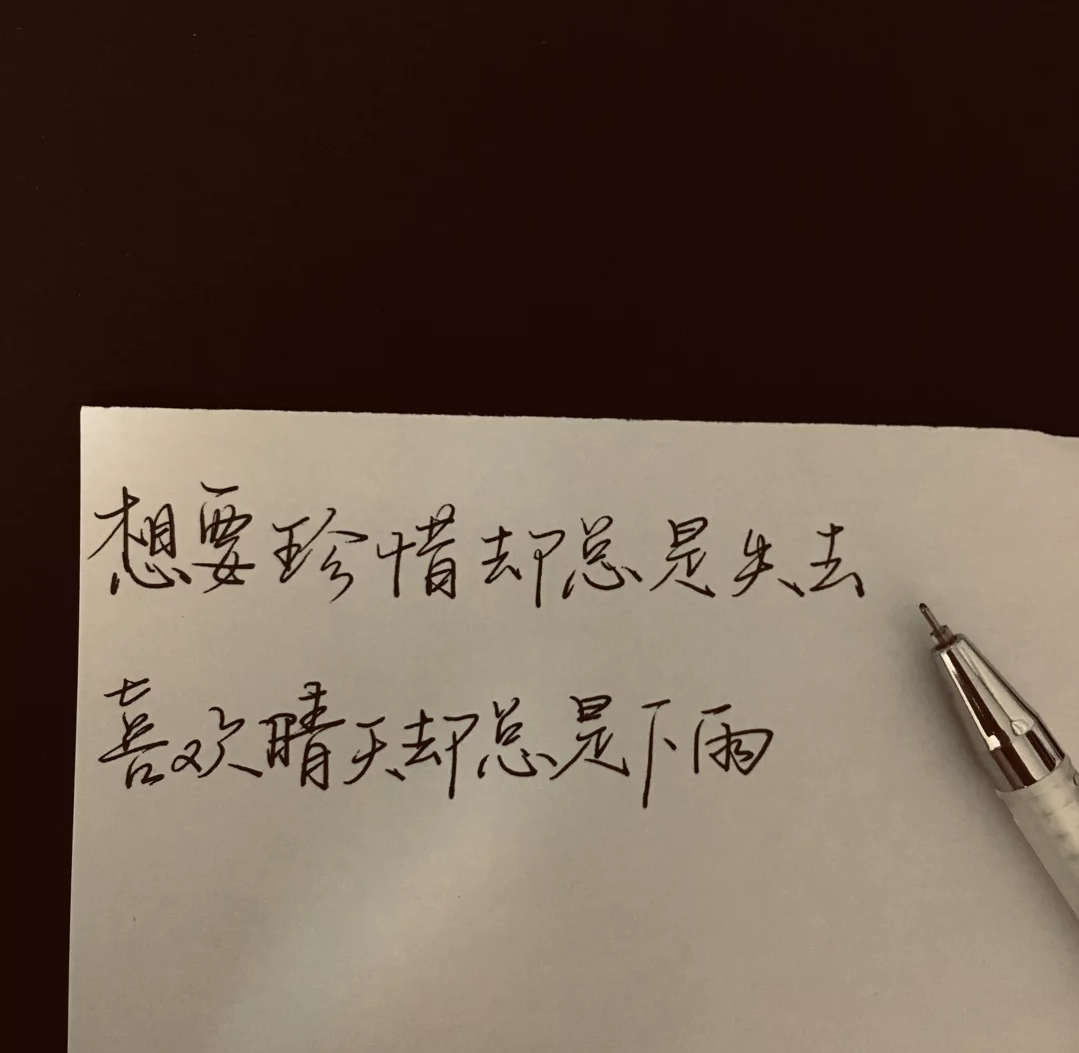 想要珍惜却总是失去
喜欢晴天却总是下雨